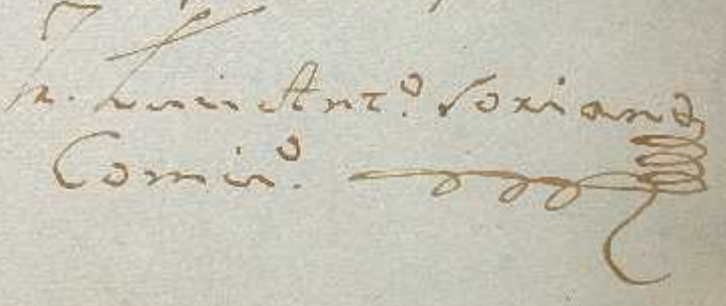 Fr. Luis Ant.º Soriano
Comis.º